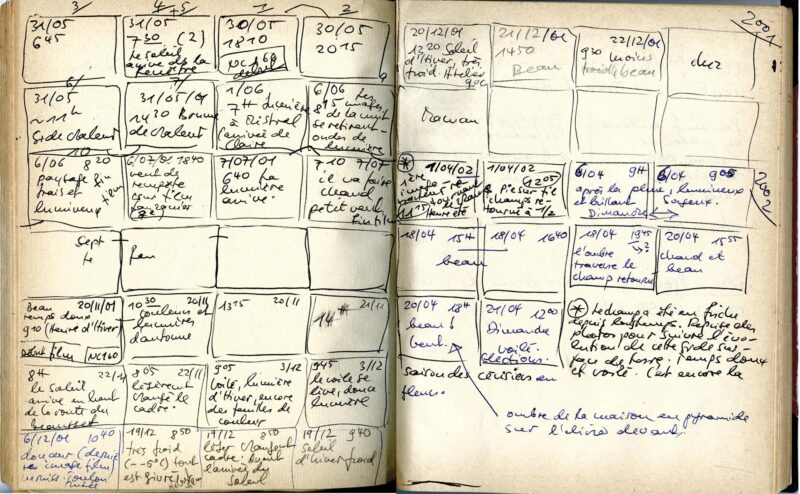 3/ 4+5 1/ 2
31/05
645
31/05
730 (2)
le soleil
arrive de la
fenêtre
30/05
1810
NC160
début
30/05
2015
6/ 7/
31/05
~11h
Side chaleur
31/05/01
1430 Brume
de chaleur
1/06
7H lumière
à Cristral
l'arrivée de
Claire
6/06 Les
815 images
de la nuit
se retirent
ondes de
lumière
10
6/06 820
paysage fin
frais et film
lumineux
6/07/01 1840
vent de
tempête
sous film
7/07/01
640 La
lumière
arrive.
710 7/07
il va faire
chaud
petit vent
fin film
Sept
te
Rien
Beau 20/11/01
temps doux
910 (Heure d'Hiver)
début film NC160
1030 20/11
couleurs et
lumières
d'automne
1315 20/11
14H 21/11
8H 22/11
le soleil
arrive en haut
de la voute du
Beausset
805 22/11
légèrement
changé le
cadre.
905 3/12
Voilé, lumière
d'Hiver, encore
des feuilles de
couleur
945 3/12
le voile se
lève, douce
lumière
6/12/01 1040
douceur (dernière
image film)
19/12 850
très froid
(--5°C) tout
est givré
19/12 850
léger changement
cadre. Avant
l'arrivée du
Soleil
19/12 940
Soleil
d'hiver froid
2001
20/12/01
1220 Soleil
d'Hiver, très
froid. Atelier
9°C
21/12/01
1450
Beau
22/12/01
930 moins
froid, beau
chez
Marwan
2002
* 1/04/02
1ère
image re-
1115
Heure été
1/04/02
1205
Pie sur le
champs re-
tourné à 1/2
6/04 9H
après la pluie, lumineux
et brillant
Dimanche
6/04 905
Soyeux.
18/04 15H
beau
18/04 1640
18/04 1945
l'ombre
traverse le
champ retourné
20/04 1555
chaud et
beau
20/04 18H
beau &
vent.
21/04 1200
Dimanche
voilé.
élections.
* Le champ a été en friche
depuis longtemps. Reprise des
photos pour suivre l'évo-
lution de cette Side sur-
face de terre. Temps doux
et voilé. C'est encore la
saison des cerisiers en
fleurs.
ombre de la maison en pyramide
sur l'olivier devant.